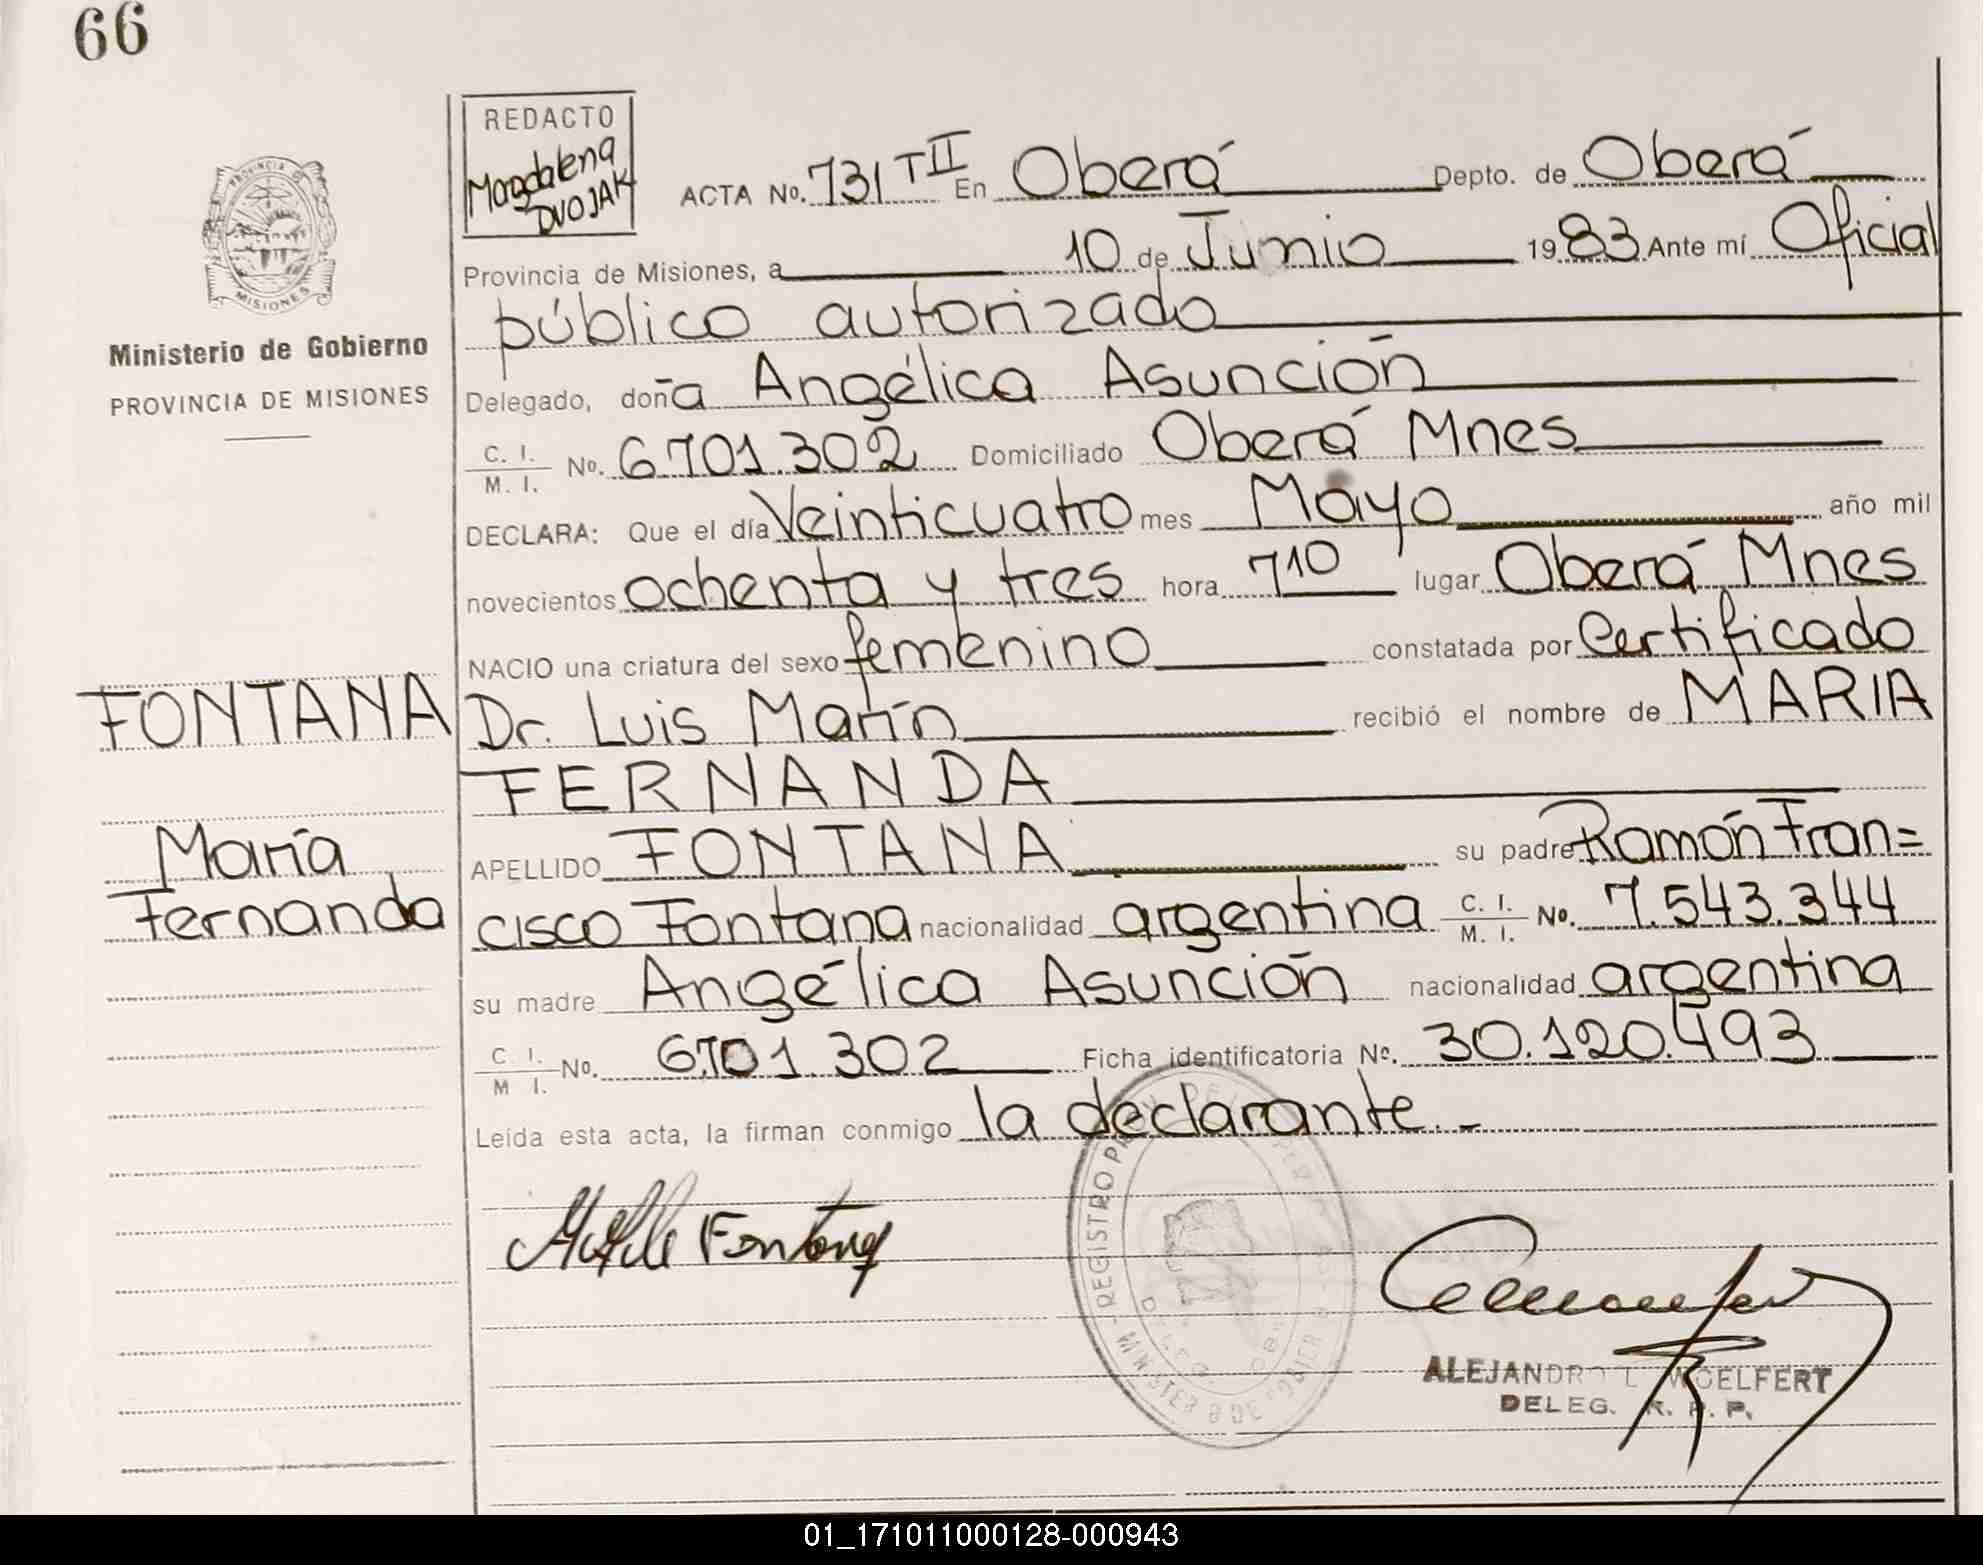 66
REDACTO
Magdalena
DVOJAK
PROVINCIA DE
MISIONES
Ministerio de Gobierno
PROVINCIA DE MISIONES
ACTA No. 731 T II En Oberá Depto. de Oberá
Provincia de Misiones, a 10 de Junio 1983 Ante mí Oficial
público autorizado
Delegado, doña Angélica Asunción
C. I. / M. I. No. 6701.302 Domiciliado Oberá Mnes
DECLARA: Que el día Veinticuatro mes Mayo año mil
novecientos ochenta y tres hora 710 lugar Oberá Mnes
NACIO una criatura del sexo femenino constatada por Certificado
FONTANA
Dr. Luis Marín recibió el nombre de MARIA
FERNANDA
María
Fernanda
APELLIDO FONTANA su padre Ramón Fran=
cisco Fontana nacionalidad argentina C. I. / M. I. No. 7.543.344
su madre Angélica Asunción nacionalidad argentina
C. I. / M I. No. 6.701.302 Ficha identificatoria No. 30.120.493
Leída esta acta, la firman conmigo la declarante.-
Fontana
ALEJANDRO L WOELFERT
DELEG. R. P. P.
01_171011000128-000943